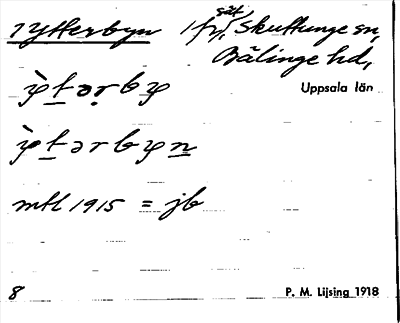 1 Ytterbyn 1 fr, gåt Skuttunge sn,
Bälinge hd,
Uppsala län
mtl 1915 = jb
8 P. M. Lijsing 1918